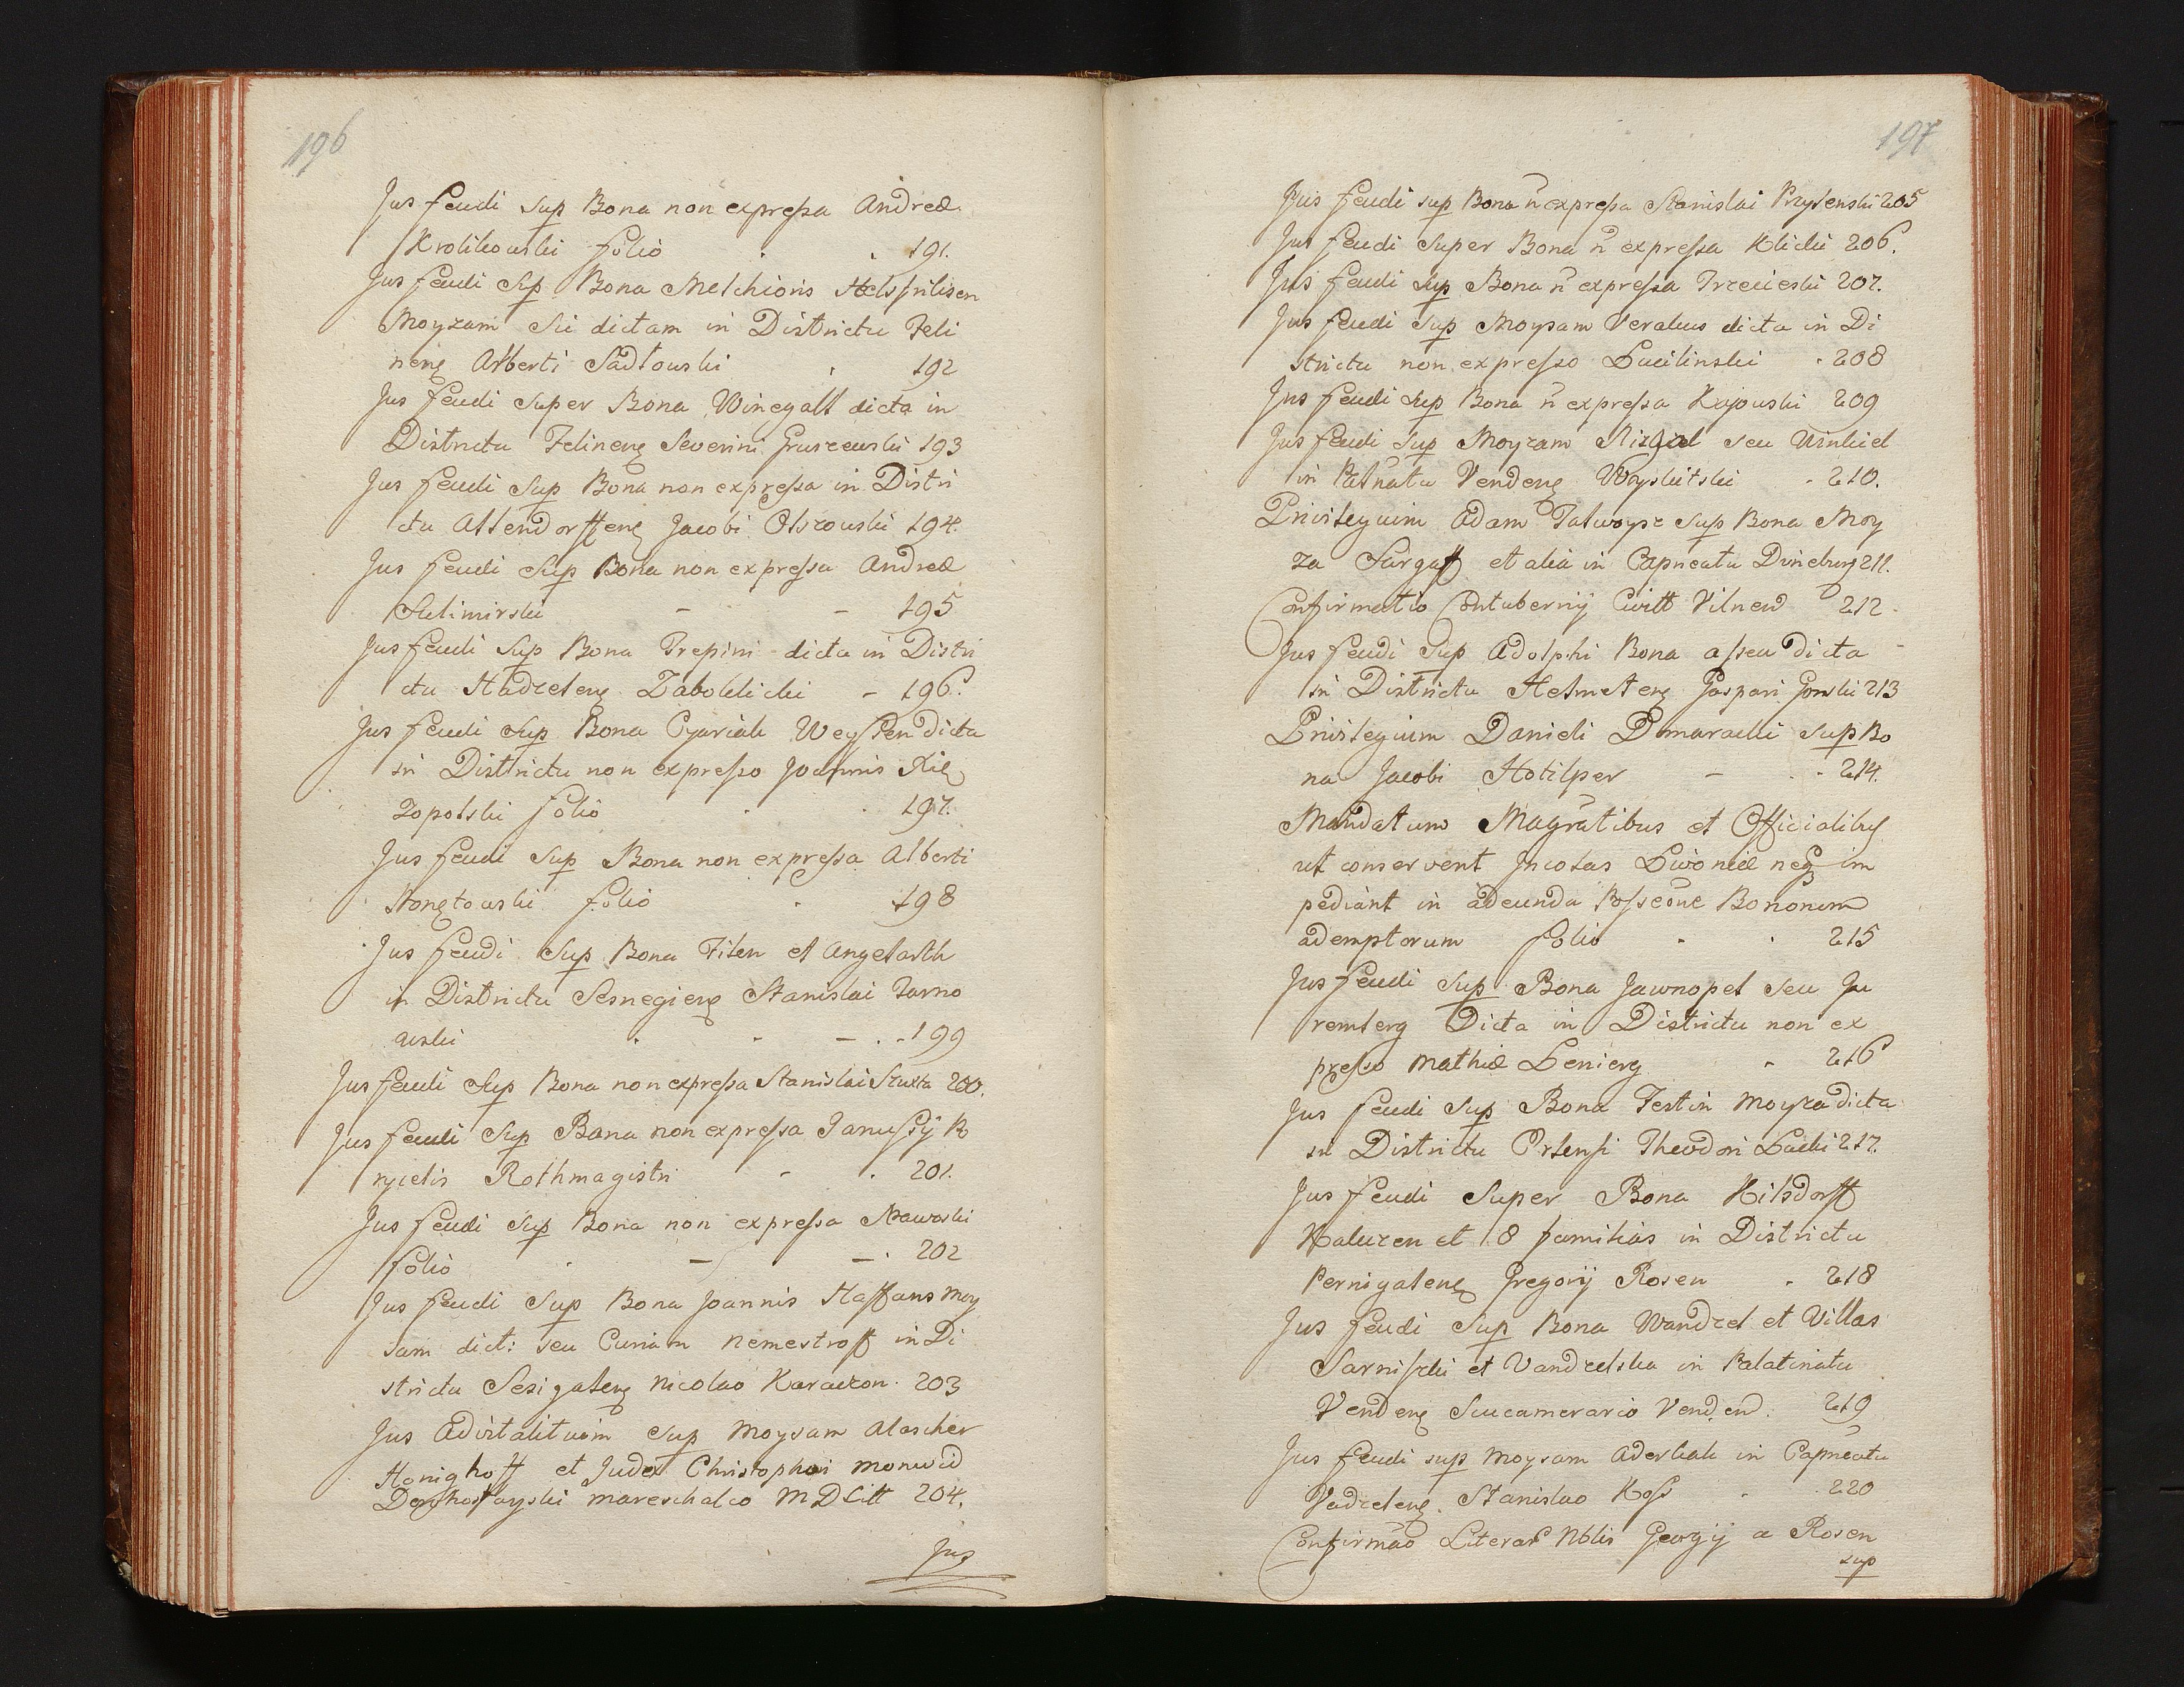 196
Jus feudi sup Bona non expressa Andreæ
Krolikowski folio . . 191.
Jus feudi Sup Bona Melchioris
Moyzam sic dictam in Districtu Feli
nens Alberti Sadlowski . 192
Jus feudi super Bona Winegalt dicta in
Districtu Felinens Severini Gurzewski 193
Jus feudi Sup Bona non expressa in Distri
ctu Allendorffens Jacobi Olszowski 194.
Jus feudi Sup Bona non expressa Andreæ
Sulimirski - - 195
Jus feudi Sup Bona Trepini dicta in Distri
ctu Zaboklicki - 196.
Jus feudi Sup Bona Weyssen dicta
in Districtu non expresso Joannis Kie
zopolski folio . . 197.
Jus feudi Sup Bona non expressa Alberti
folio . 198
Jus feudi Sup Bona Filen et Angelarth
in Districtu Sesnegiens Stanislai Tarno
wski . - - . - 199
Jus feudi Sup Bona non expressa Stanislai 200.
Jus feudi Sup Bona non expressa Janussÿ K
nycelis Rothmagistri - . 201.
Jus feudi Sup Bona non expressa
folio . - - . 202
Jus feudi Sup Bona Joannis Haffans moy
sam dict: seu Curiam Nemestroff in Di
strictu Sezigalens Nicolao Karaczon. 203
Jus Advitalituim sup Moysam Alascher
Honighoff et Judex Christophori Monwid
Dorohostayski mareschalco M D Litt 204.
Jus
197
Jus feudi sup Bona n expressa Stanislai 205
Jus feudi super Bona n expressa Klicki 206.
Jus feudi sup Bona n expressa Trzecieski 207.
Jus feudi sup Moysam dicta in Di
strictu non expresso . 208
Jus feudi sup Bona n expressa 209
Jus feudi sup Moyzam seu
in Patnatu Vendens . 210.
Privilegium Adam Talwoysz sup Bona Moy
za et alia in Capneatu Duneburg 211.
Confirmatio Contubernÿ Civitt 212.
Jus feudi Sup Adolphi Bona dicta
in Districtu Helmetens Gaspari Gorski 213
Privilegium Danieli sup Bo
na Jacobi Hotilper - . - 214.
Mandatum Magratibus et Officialibus
ut conservent Incolas Livoniæ neq im
pediant in adeunda Posseone Bononum
ademptorum folio . . 215
Jus feudi Sup Bona Jawnopel seu Ju
remberg Dicta in Districtu non ex
presso Mathiæ . 216
Jus feudi Sup Bona Testin Moyza dicta
in Districtu Orlensi Theodori Lacki 217.
Jus feudi Super Bona Hilsdorff
Kaluzen et 8 familias in Districtu
Pernigalens Gregorÿ Rosen . 218
Jus feudi Sup Bona Wandzel et Villas
et Vandzelska in Palatinatu
Vendens Succamerario Venden. 219
Jus feudi sup Moysam in Capneatu
Stanislao Koss . 220
Confirmao Literar Nblis Georgÿ a Rosen
sup